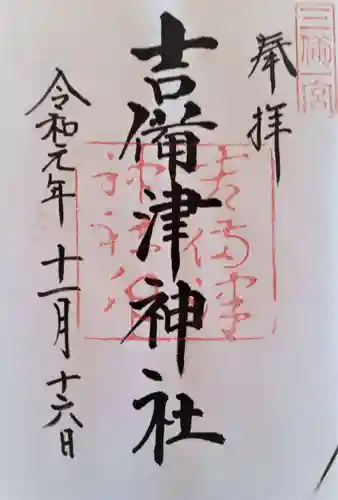 三備一宮
奉拝
吉備津神社
令和元年 十一月 十六日